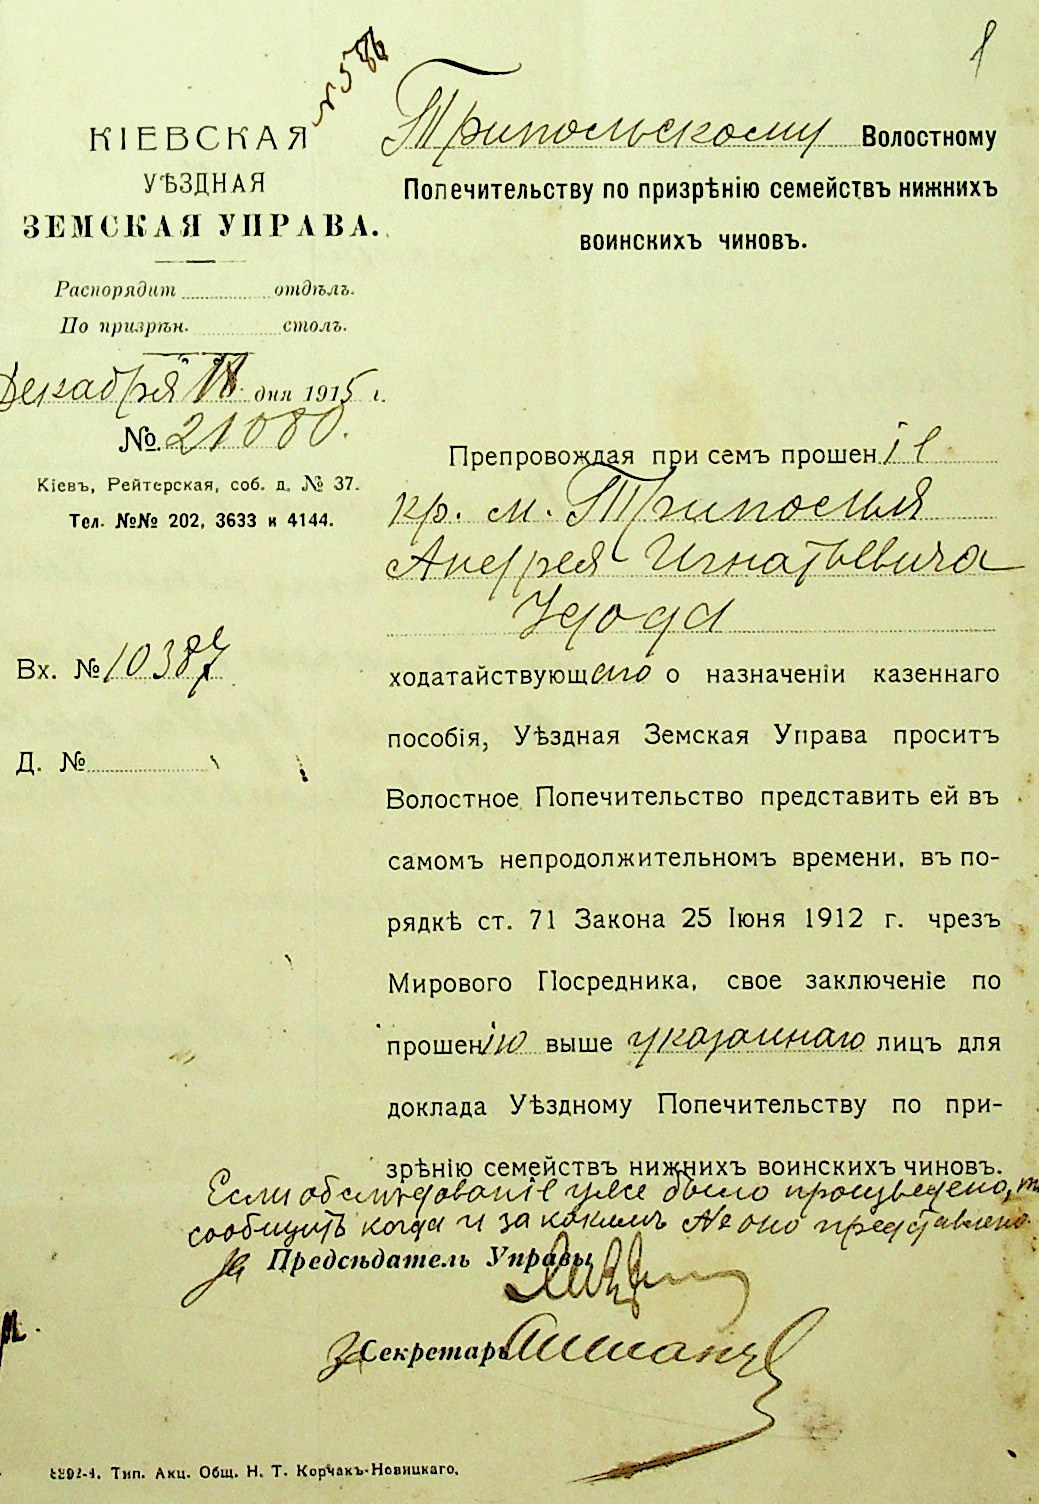 1
№ 586
КІЕВСКАЯ
УѢЗДНАЯ
ЗЕМСКАЯ УПРАВА.
Распорядит отдѣлъ.
По призрѣн. столъ.
Декабря 18 дня 1915 г.
№ 21080.
Кіевъ, Рейтерская, соб. д. № 37.
Тел. №№ 202, 3633 и 4144.
Вх. № 10387
Д. №
Трипольскому Волостному
Попечительству по призрѣнію семействъ нижнихъ
воинскихъ чиновъ.
Препровождая при семъ прошеніе
кр. м. Триполья
Андрея Игнатьевича
ходатайствующаго о назначеніи казеннаго
пособія, Уѣздная Земская Управа проситъ
Волостное Попечительство представить ей въ
самомъ непродолжительномъ времени, въ по-
рядкѣ ст. 71 Закона 25 Іюня 1912 г. чрезъ
Мирового Посредника, свое заключеніе по
прошенію выше указаннаго лицъ для
доклада Уѣздному Попечительству по при-
зрѣнію семействъ нижнихъ воинскихъ чиновъ.
Если обслѣдованіе уже было произведено, то
сообщить когда и за какимъ № оно представлено
За Предсѣдатель Управы
За Секретарь
Тип. Акц. Общ. Н. Т. Корчакъ-Новицкаго.